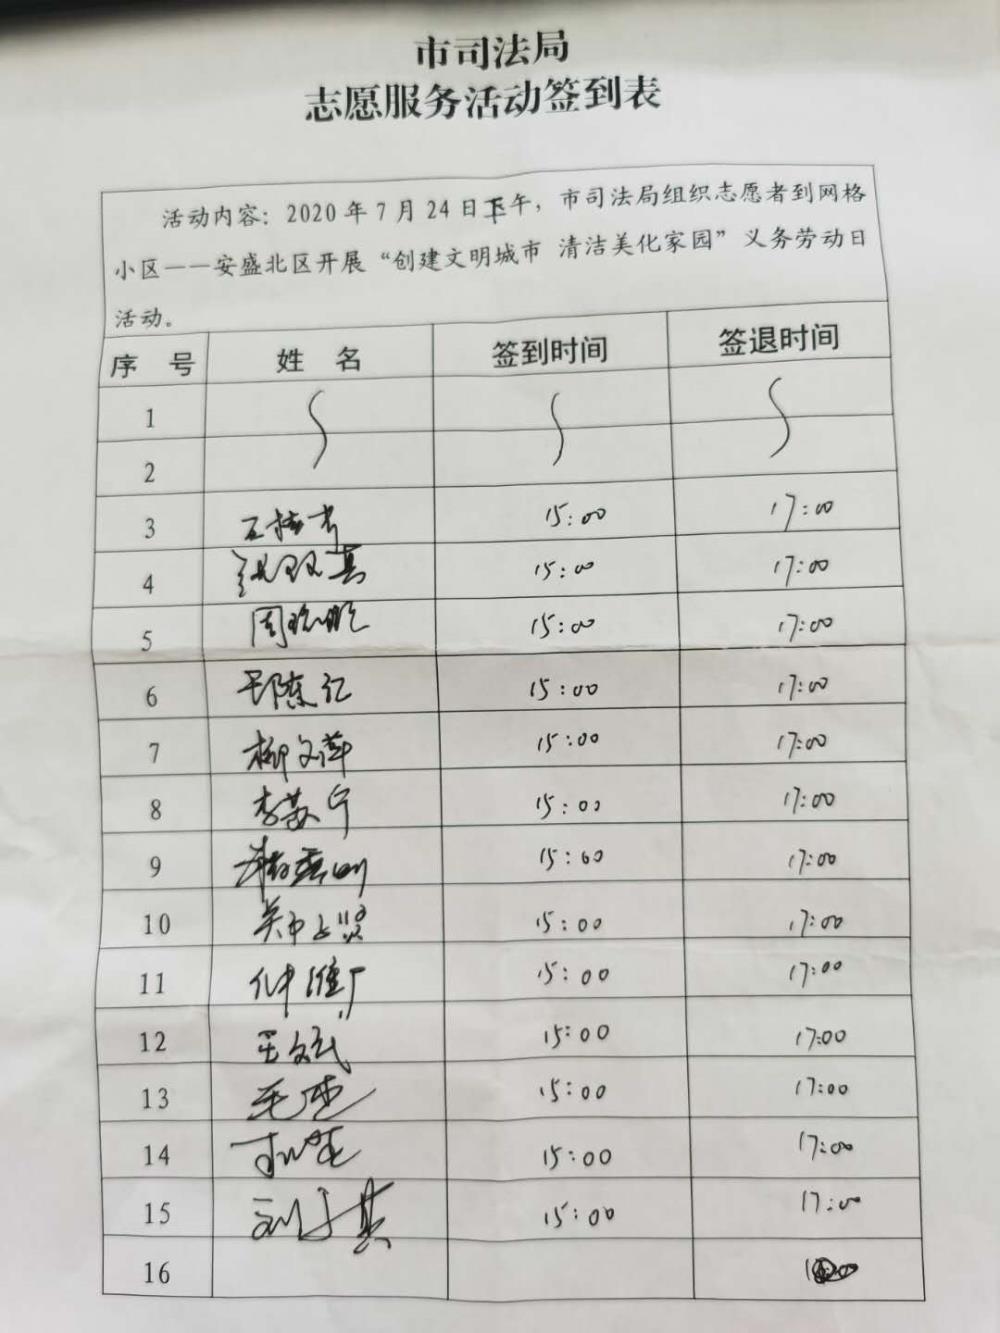 市司法局
志愿服务活动签到表
活动内容：2020年7月24日下午，市司法局组织志愿者到网格
小区——安盛北区开展“创建文明城市 清洁美化家园”义务劳动日
活动。
序 号 姓 名 签到时间 签退时间
1
2
3 15:00 17:00
4 15:00 17:00
5 15:00 17:00
6 15:00 17:00
7 柳文萍 15:00 17:00
8 李苏宁 15:00 17:00
9 15:00 17:00
10 15:00 17:00
11 15:00 17:00
12 王文武 15:00 17:00
13 15:00 17:00
14 15:00 17:00
15 15:00 17:00
16